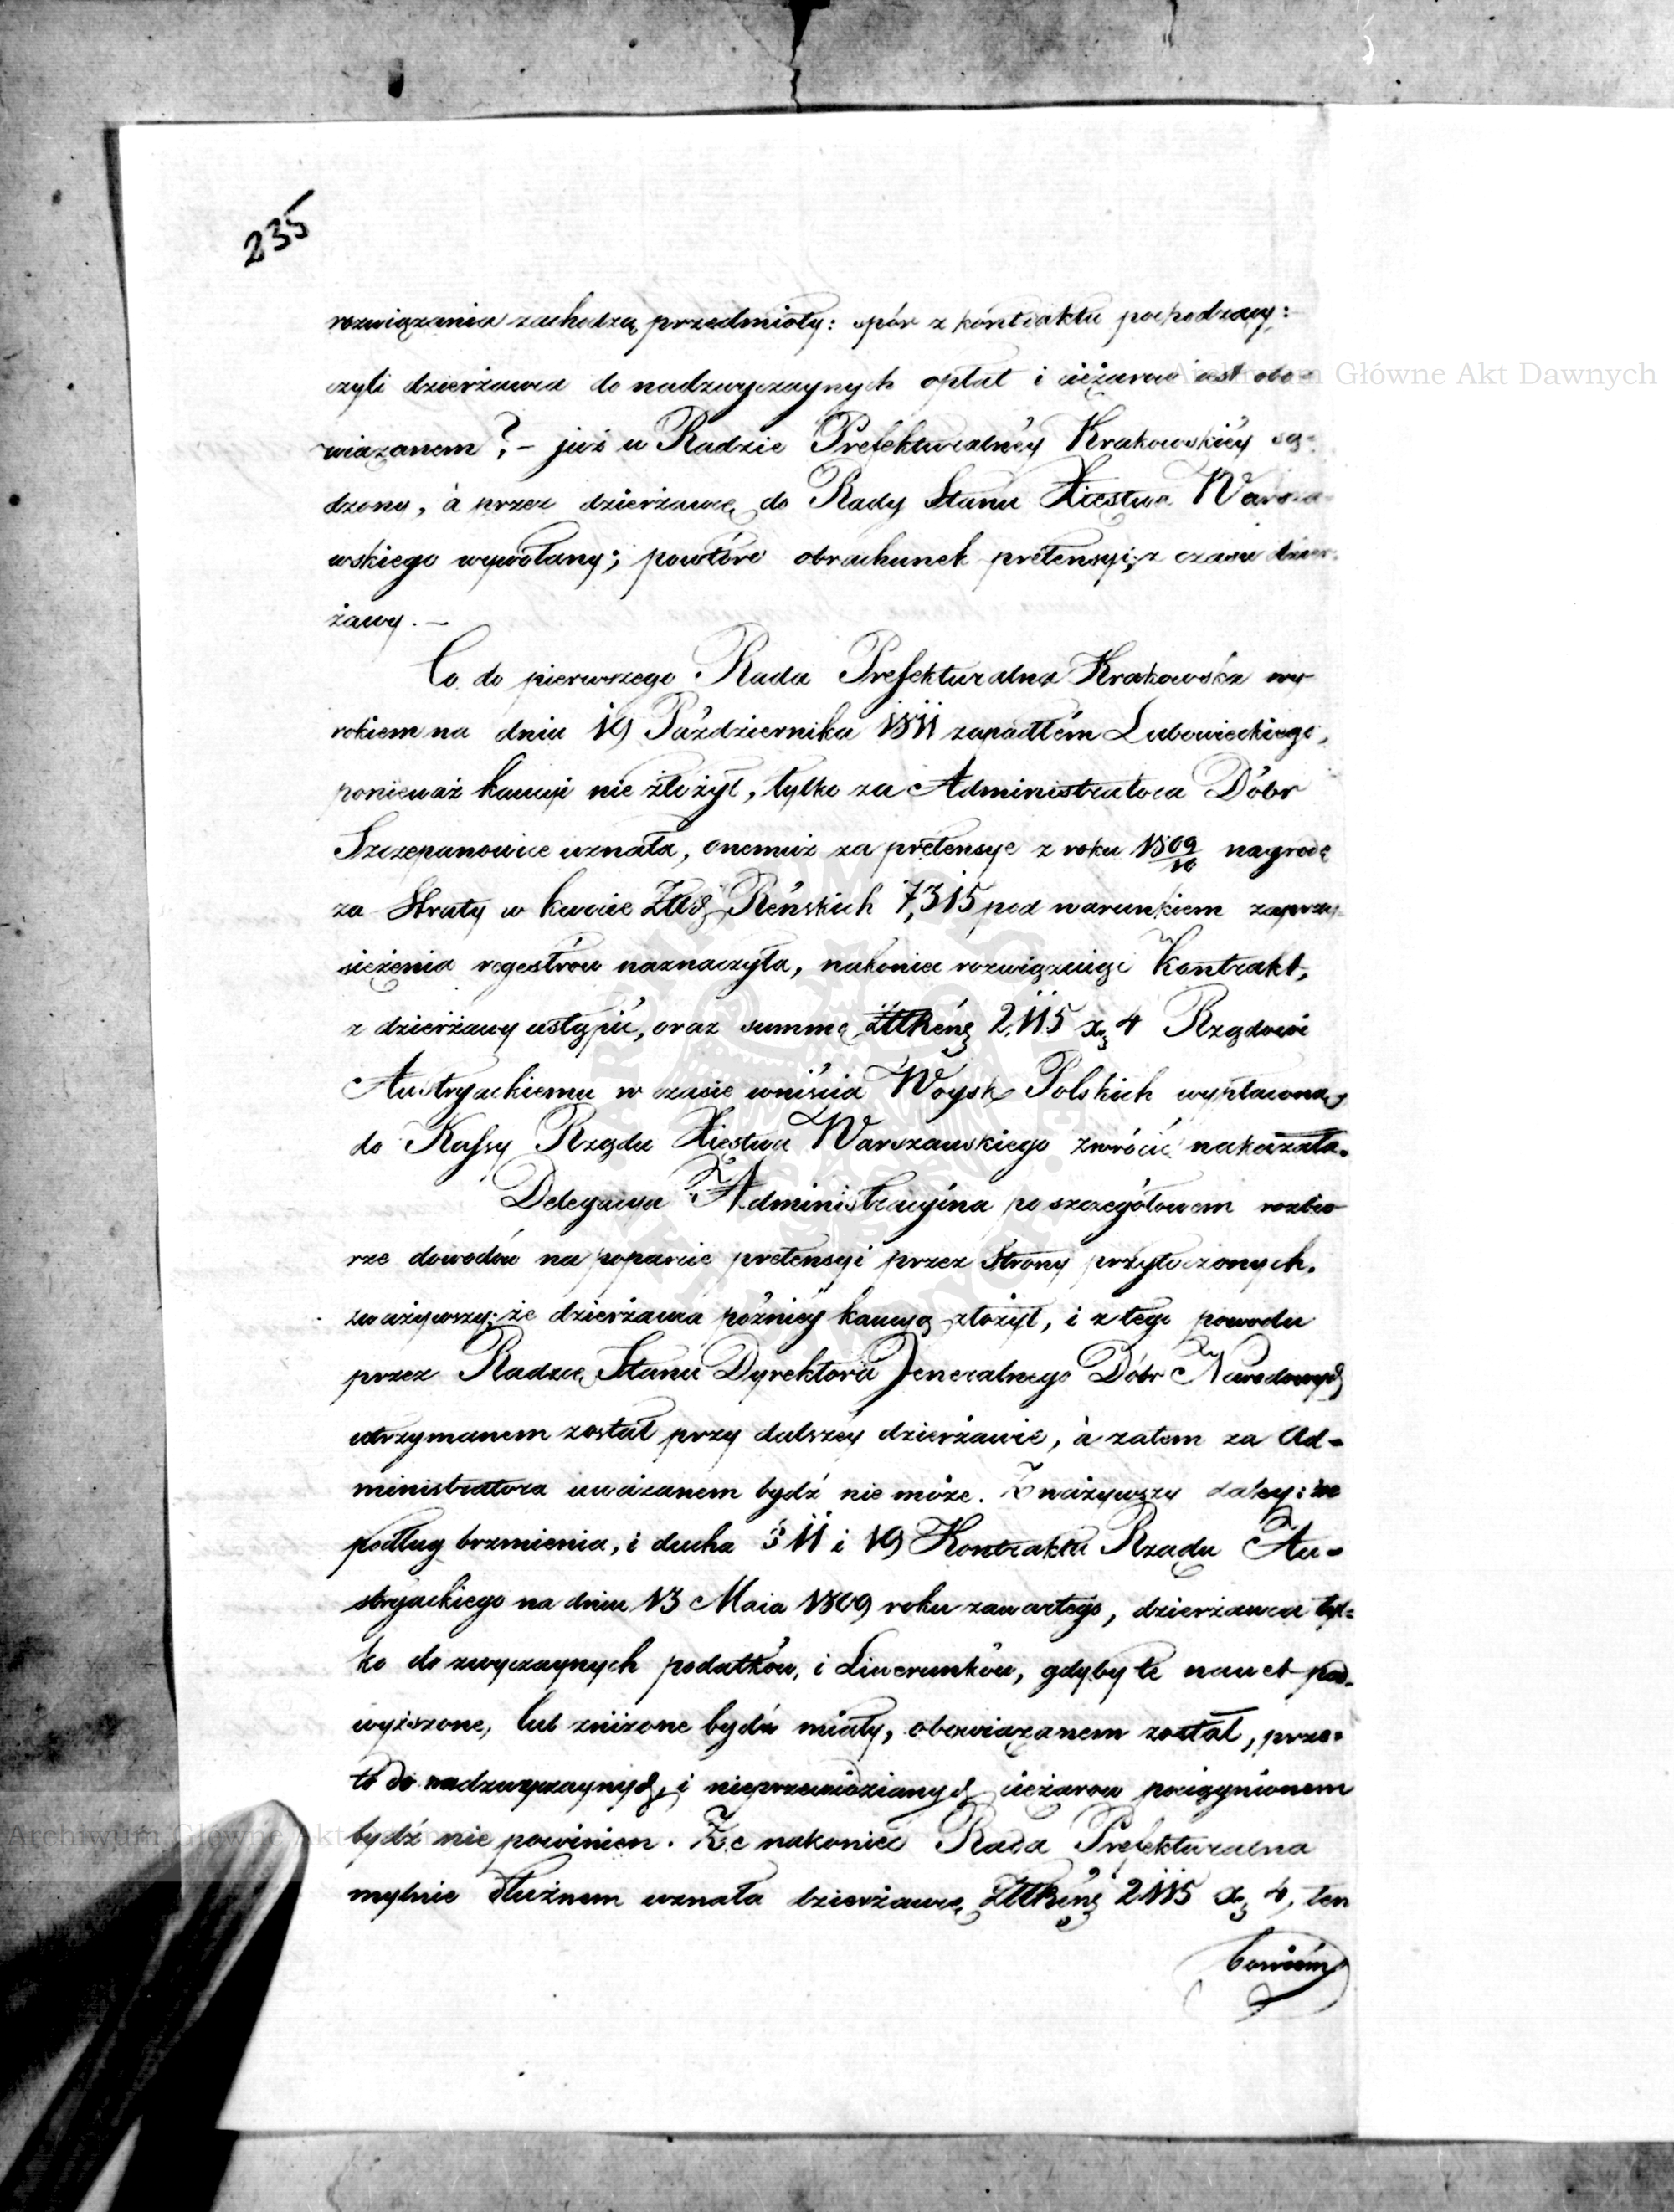 235
rozwiązania zachodzą przedmioty: spór z kontraktu pochodzący:
czyli dzierżawca do nadzwyczaynych opłat i ciężarów iest obo-
wiązanem? – już w Radzie Prefekturalnéy Krakowskiéy są-
dzony, à przez dzierżawcę do Rady Stanu Xięstwa Warsza-
wskiego wywołany; powtóre obrachunek pretensyi z czasu dzier-
żawy. –
Co do pierwszego Rada Prefekturalna Krakowska wy-
rokiem na dniu 19 Października 1811 zapadłém Lubowieckiego,
ponieważ kaucyi nie złożył, tylko za Administratora Dóbr
Szczepanowice uznała, onemuż za pretensye z roku 1809/10 nagrodę
za Straty w kwocie Złłch Reńskich 7,315 pod warunkiem zaprzy-
siężenia regestrów naznaczyła, nakoniec rozwiązuiąc Kontrakt,
z dzierżawy ustąpić, oraz summę Złł Reńs 2,115 xr 4 Rządowi
Austryackiemu w czasie wniścia Woysk Polskich wypłaconą,
do Kassy Rządu Xięstwa Warszawskiego zwrócić nakazała.
Delegacya Administracyina po szczegółowem rozbio-
rze dowodów na poparcie pretensyi przez Strony przytoczonych.
zważywszy: że dzierżawca późniéy kaucyą złożył, i z tego powodu
przez Radzcę Stanu Dyrektora Jeneralnego Dóbr Narodowych
utrzymanem został przy dalszéy dzierżawie, à zatem za Ad-
ministratora uważanem bydź nie może. Zważywszy daley: że
podług brzmienia, i ducha § 11 i 19 Kontraktu Rządu Au-
stryackiego na dniu 13 Maia 1809 roku zawartego, dzierżawca tyl-
ko do zwyczaynych podatków, i Liwerunków, gdyby te nawet pod-
wyższone, lub zniżone bydź miały, obowiązanem został, prze-
to do nadzwyczaynych, i nieprzewidzianych ciężarów pociągnionem
bydź nie powinien. Że nakoniec Rada Prefekturalna
mylnie dłużnem uznała dzierżawcę Złł Reńs 2115 xr 4, ten
bowiém
Archiwum Główne Akt Dawnych
Archiwum Główne Akt Dawnych